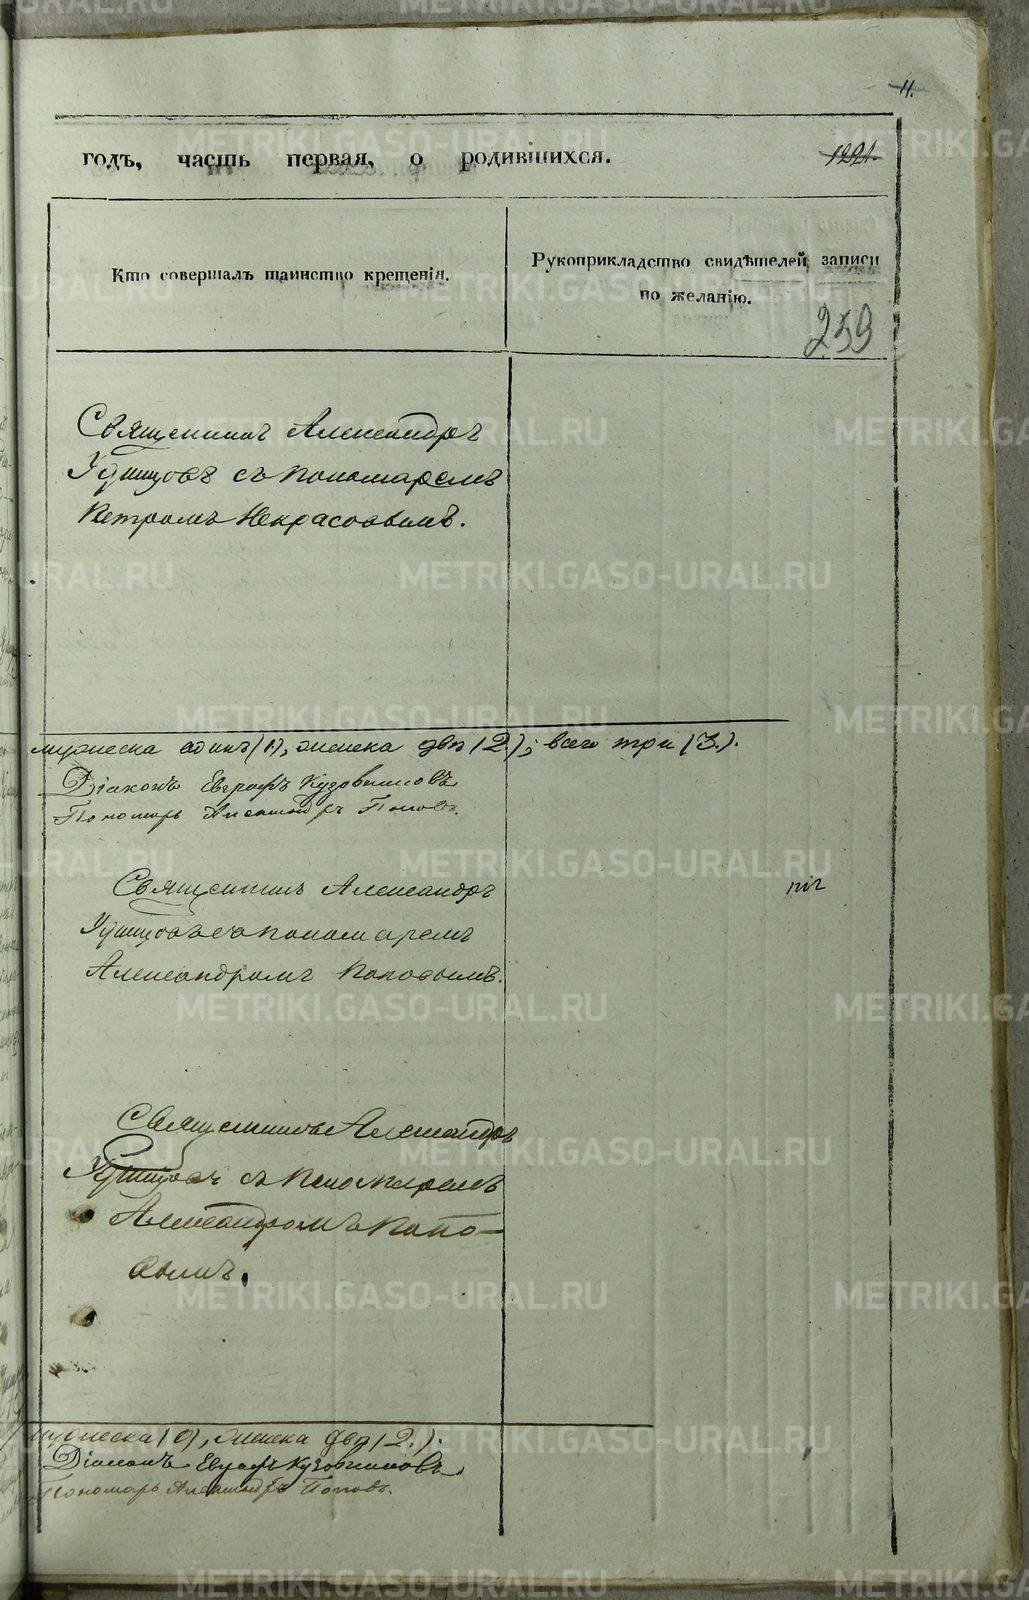 11.
годъ, часть первая, о родившихся.
Кто совершалъ таинство крещенія.
Рукоприкладство свидѣтелей записи
по желанію.
259
Священникъ Александръ
Удинцовъ съ пономаремъ
Петромъ Некрасовымъ.
мужеска единъ (1), женска два (2.); всего три (3.).
Діаконъ Евграфъ Кузовниковъ
Пономарь Александръ Поповъ.
Священникъ Александръ
Удинцовъ съ пономаремъ
Александромъ Поповымъ.
Священникъ Александръ
Удинцовъ съ пономаремъ
Александромъ Попо-
вымъ.
мужеска (0), женска два (2.).
Діаконъ Евграфъ Кузовниковъ
Пономарь Александръ Поповъ.
METRIKI.GASO-URAL.RU